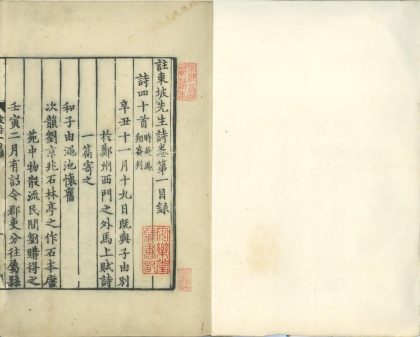 註東坡先生詩卷第一目録
詩四十首
辛丑十一月十九日既與子由別
於鄭州西門之外馬上賦詩
一篇寄之
和子由澠池懷舊
次韻劉京兆石林亭之作石本唐
苑中物散流民間劉購得之
壬寅二月有詔令郡吏分往屬縣